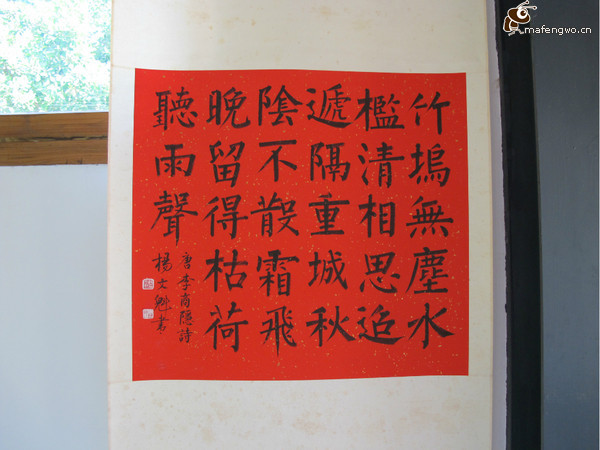 竹塢無塵水
檻清相思迢
遞隔重城秋
陰不散霜飛
晚留得枯荷
聽雨聲
唐李商隱詩
楊文魁書
mafengwo.cn